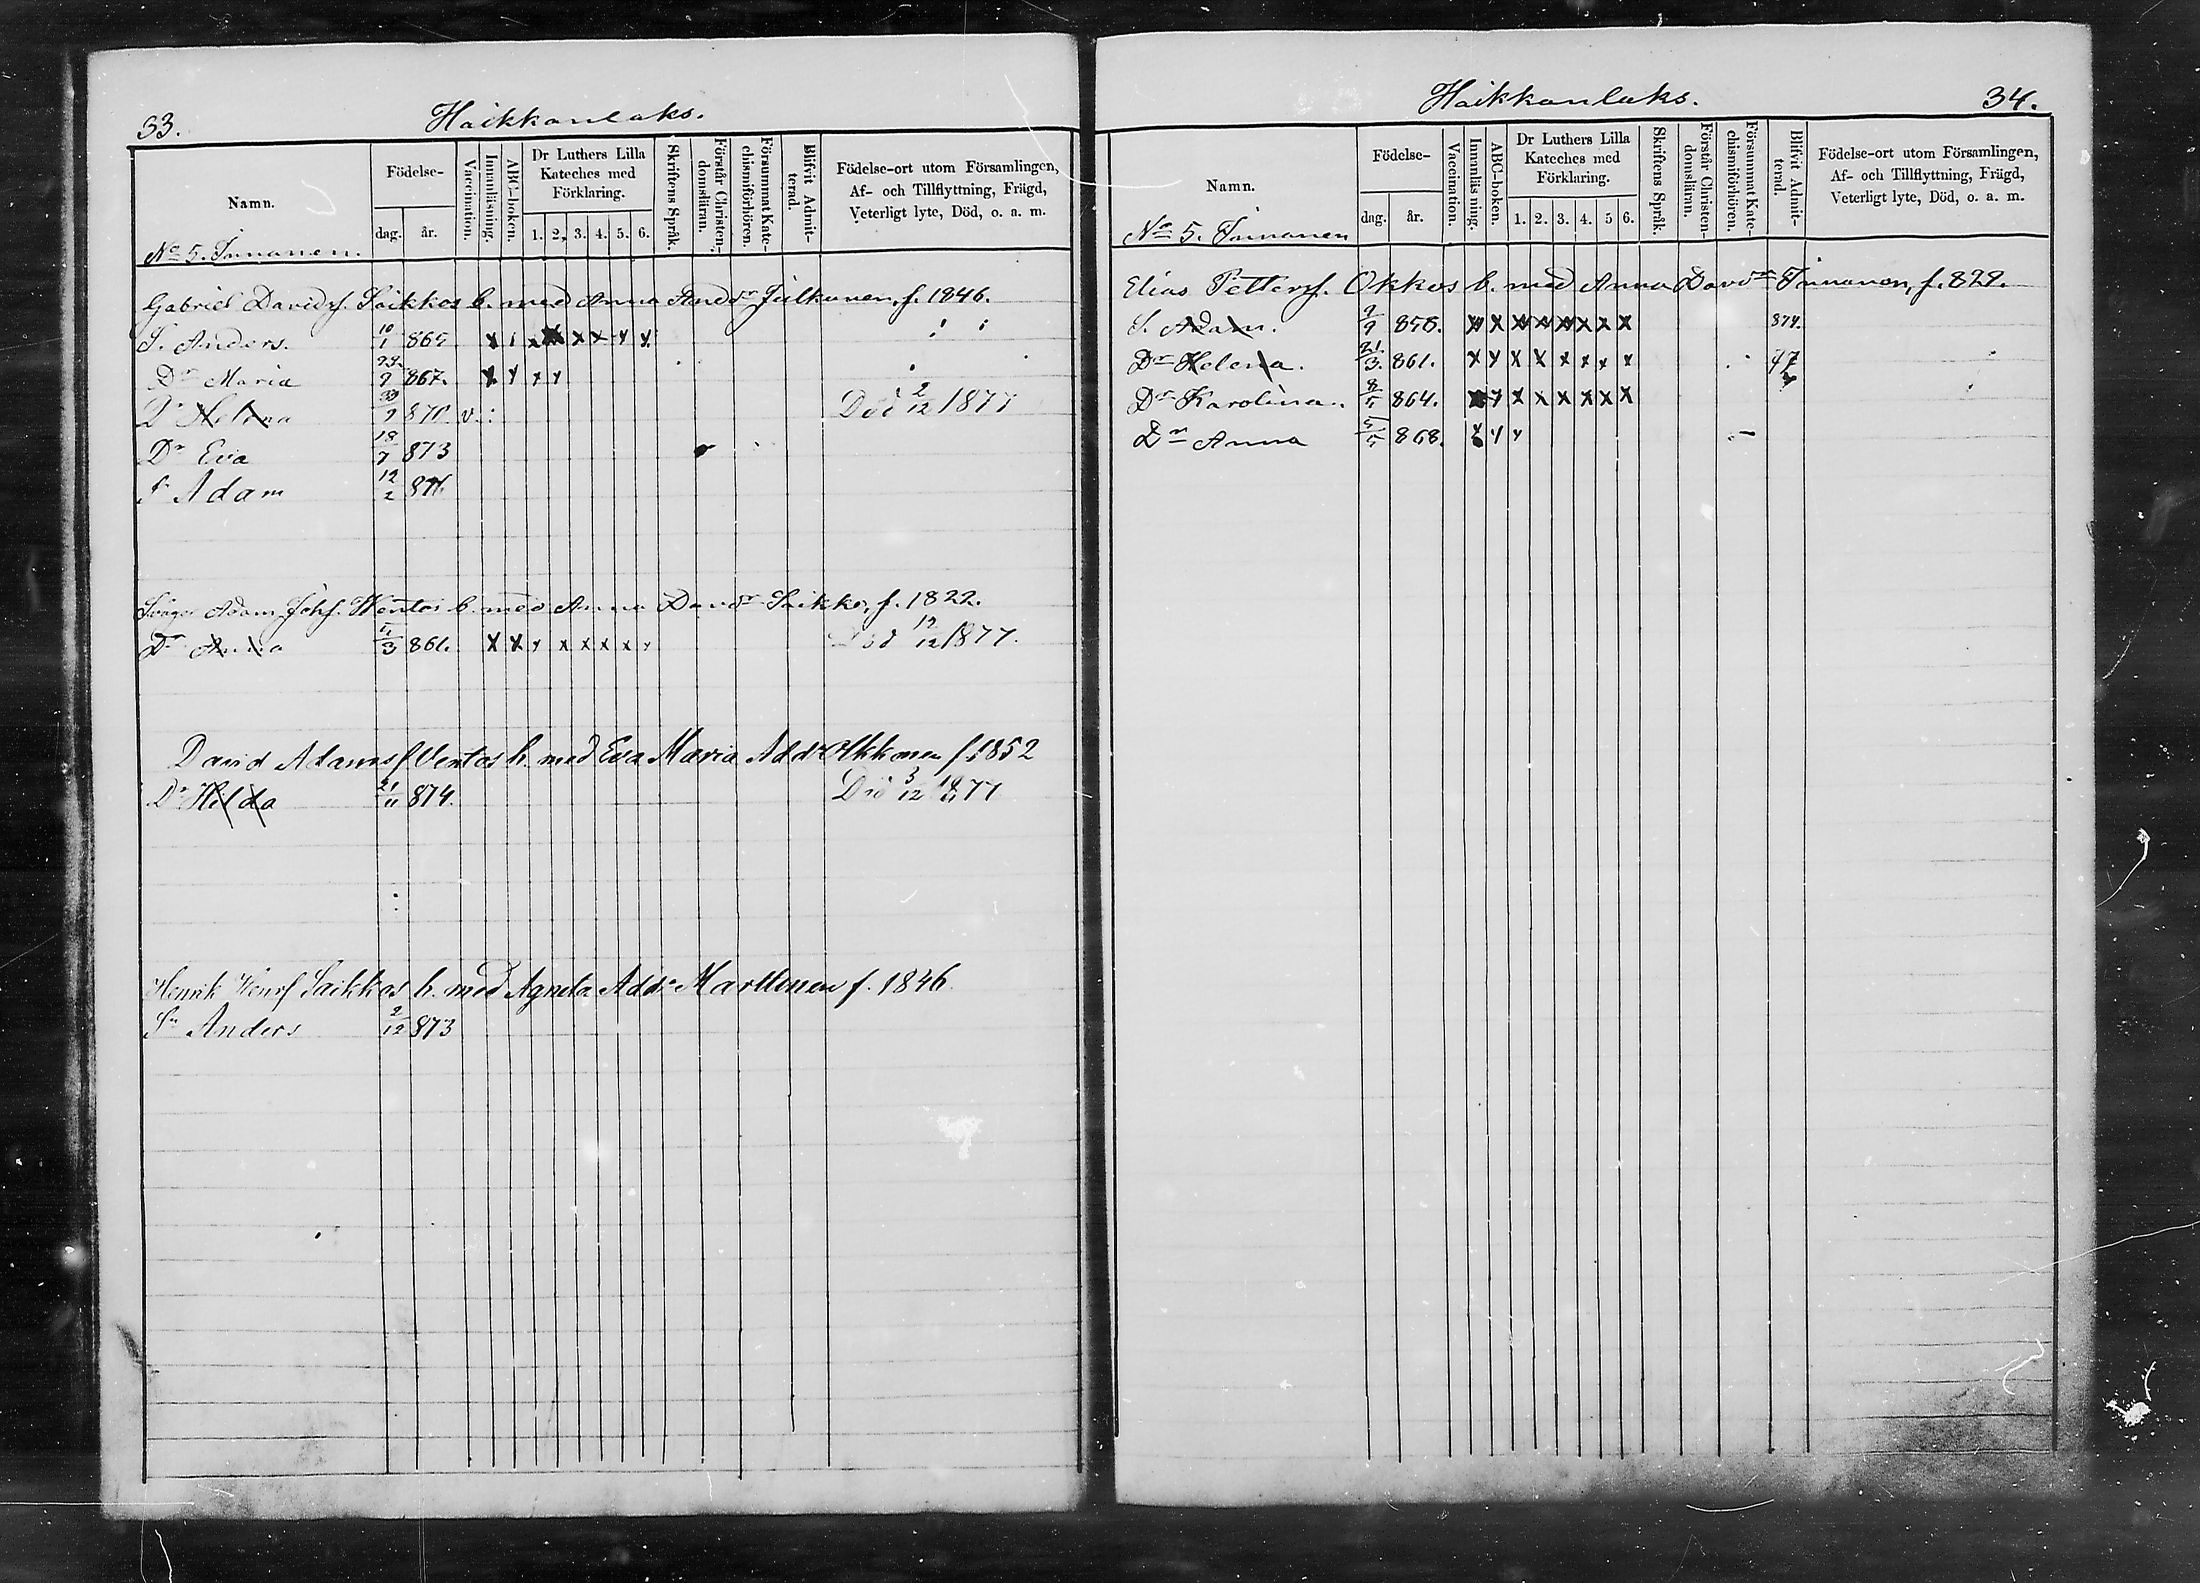 33.
Haikkanlaks.
Namn.
Födelse-
dag. år.
Vaccination.
Innanläsning.
ABC-boken.
Dr Luthers Lilla Kateches med Förklaring.
1. 2. 3. 4. 5. 6.
Skriftens Språk.
Förstår Christendomsläran.
Försummat Katechismiförhören.
Blifvit Admitterad.
Födelse-ort utom Församlingen,
Af- och Tillflyttning, Frägd,
Veterligt lyte, Död, o. a. m.
No 5. Innanen.
Gabriel Davids. Saikkos b. med Anna Andsr Julkunen, f. 1846.
S. Anders. 10/1 865 x 1 x x x x x x
Dr Maria 9 867. x x x x
Dr Helena 870 v. Död 2/12 1877
Dr Eva 18/7 873
S. Adam 12/2 876.
Svåger Adam Johs. Wentos b. med Anna Davdr Saikko, f. 1822.
Dr Anna 3 861. x x x x x x x x Död 12/12 1877.
David Adamsf Ventos h. med Eva Maria Addr Ukkonen f. 1852
Dr Hilda 21/11 874. Död 3/12 1877
Henrik Henrsf Saikkos h. med Agneta Addr Marttinen f. 1846
Sn Anders 2/12 873
Haikkanlaks.
34.
Namn.
Födelse-
dag. år.
Vaccination.
Innanläsning.
ABC-boken.
Dr Luthers Lilla Kateches med Förklaring.
1. 2. 3. 4. 5 6.
Skriftens Språk.
Förstår Christendomsläran.
Försummat Katechismiförhören.
Blifvit Admitterad.
Födelse-ort utom Församlingen,
Af- och Tillflyttning, Frägd,
Veterligt lyte, Död, o. a. m.
No 5. Innanen
Elias Petters. Okkos b. med Anna Davdr Innanen, f. 828.
S. Adam. 9/9 858. x x x x x x x x 874.
Dr Helena. 21/3. 861. x x x x x x x x 77
Dr Karolina. 8/11 864. x x x x x x x x
Dr Anna 5/5 868. x x x